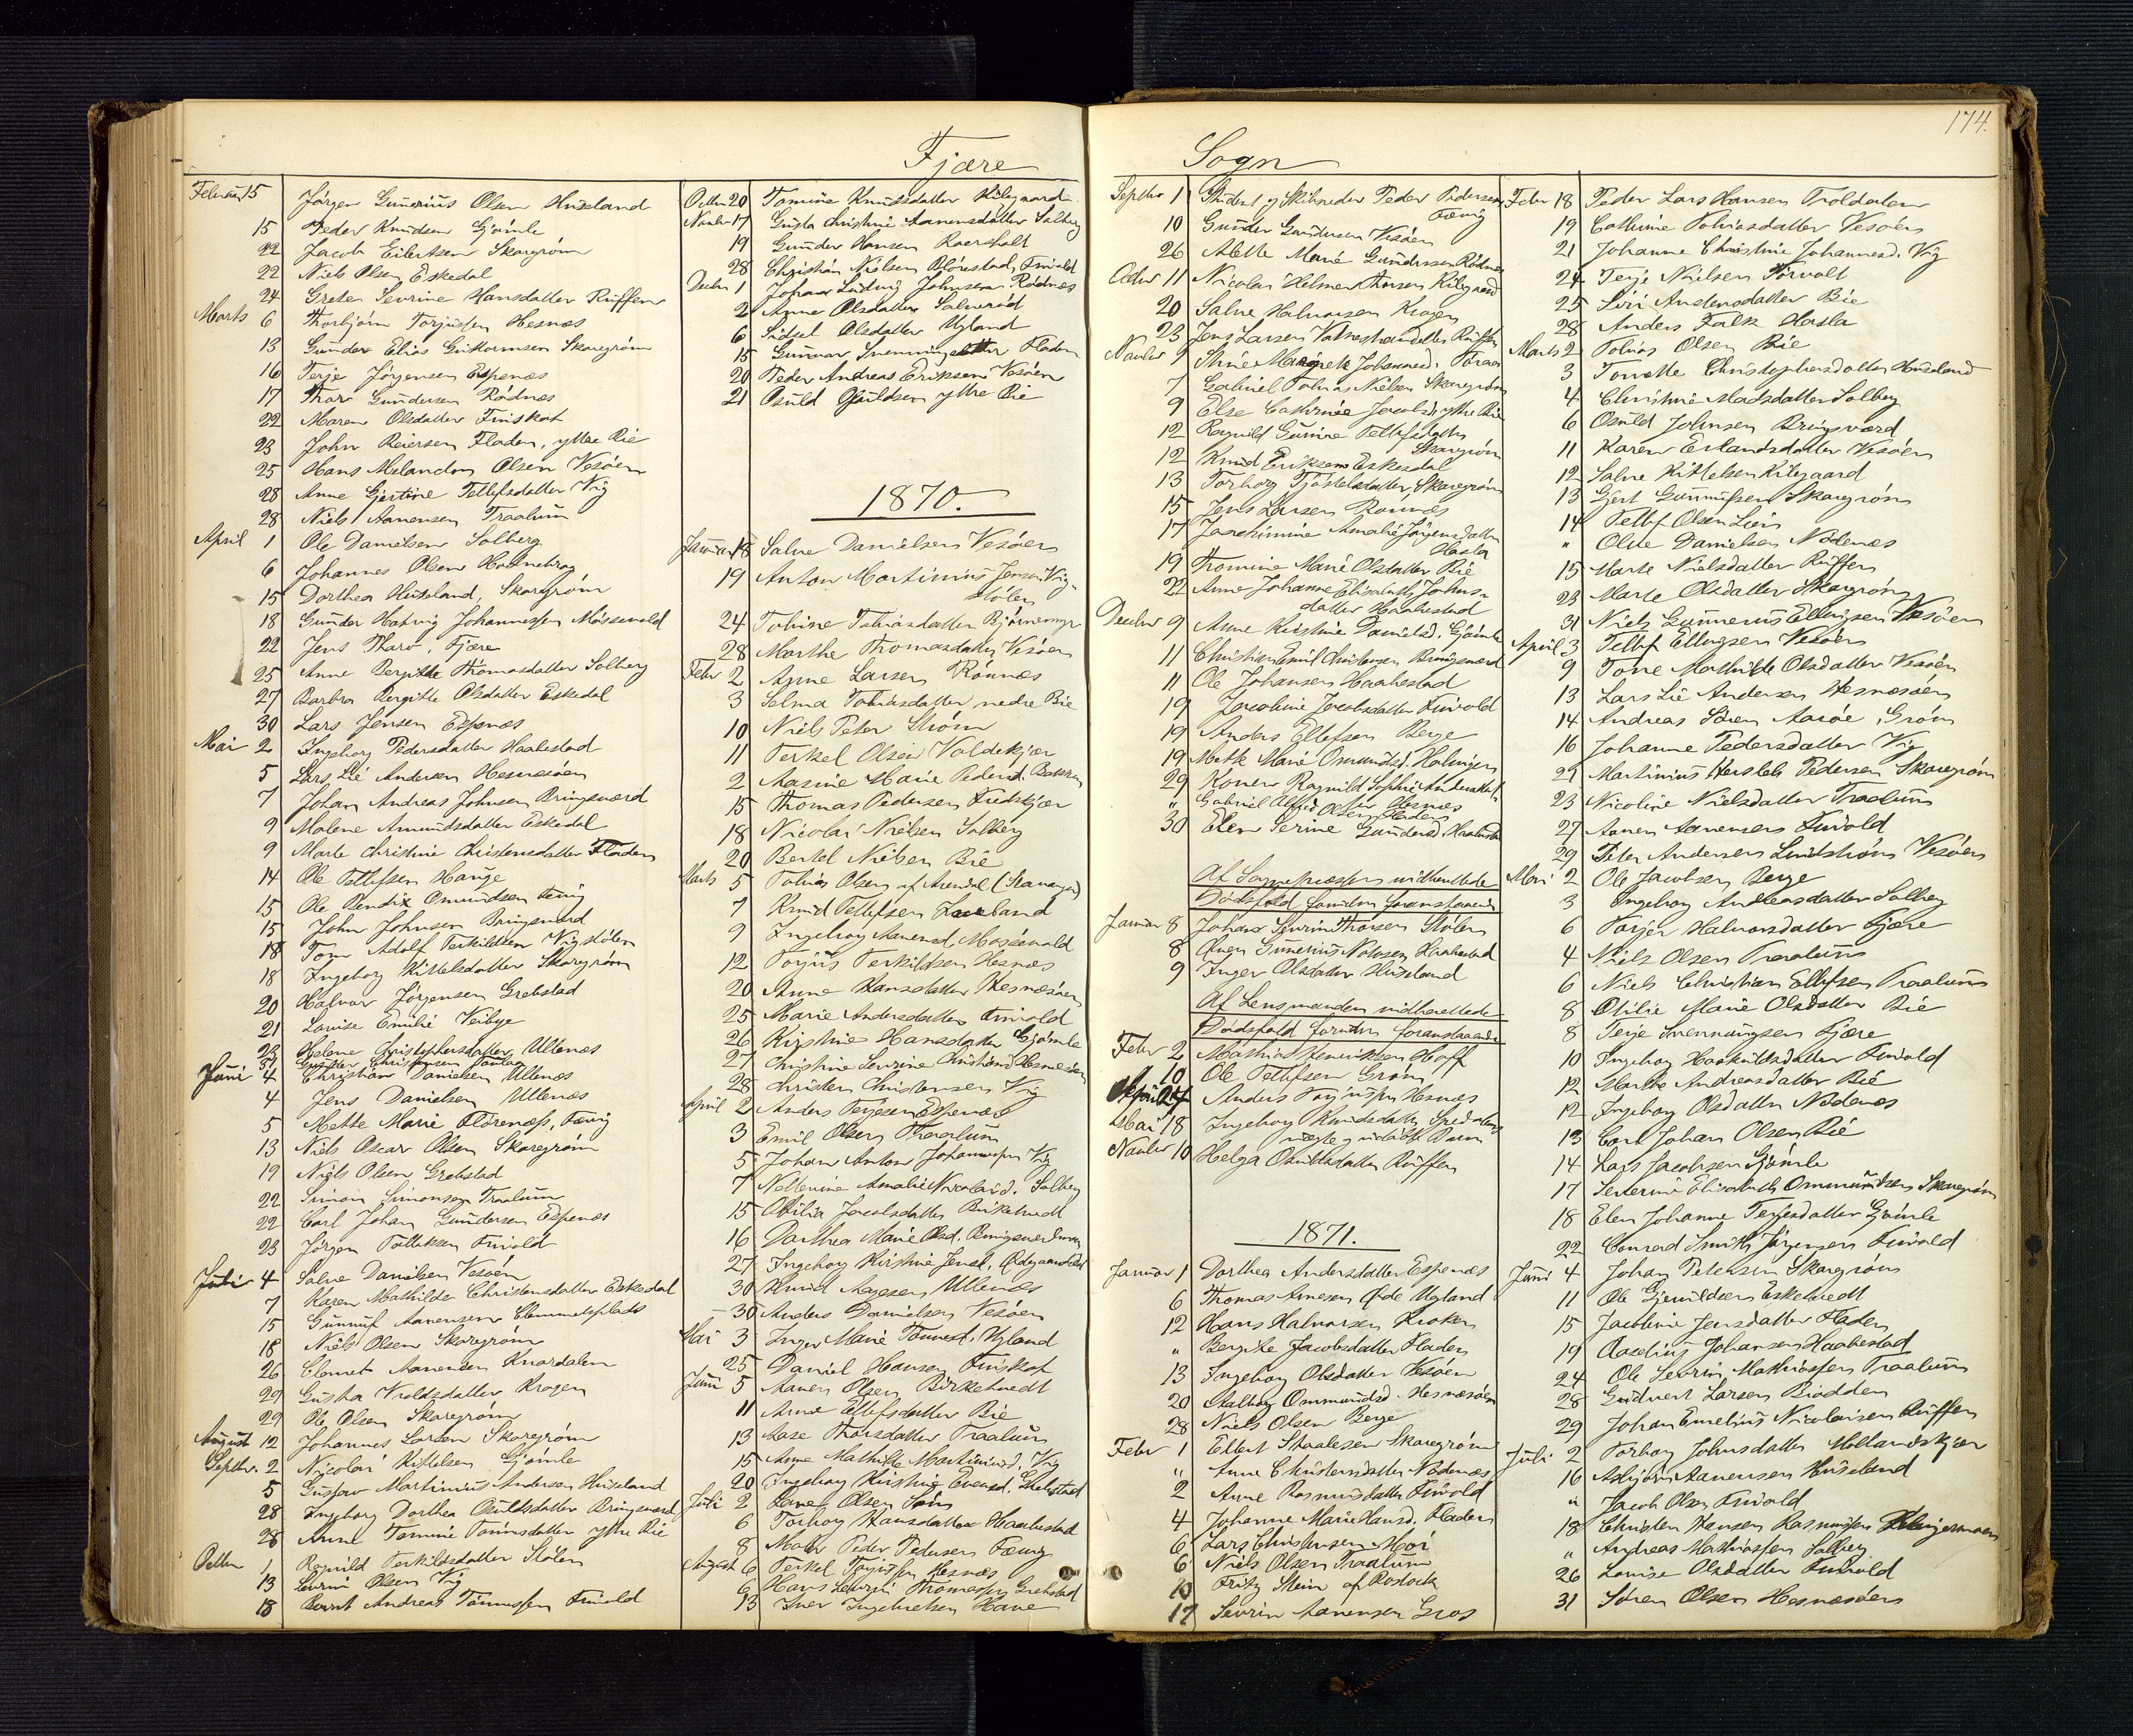 174.
Fjære
Sogn
Februar 15 Jörgen Gunerius Olsen Huseland
15 Peder Knudsen Gjömle
22 Jacob Eilertsen Skaregröm
22 Niels Olsen Eskedal
24 Grete Sevrine Hansdatter Ruffen
Marts 6 Thorbjörn Torjussen Hesnæs
13 Gunder Elias Guttormsen Skaregröm
16 Terje Jörgensen Espenæs
17 Thor Gundersen Rödnæs
22 Maren Olsdatter Fuiskot
23 John Reiersen Fladen, yttre Bie
25 Hans Melandon Olsen Vesöen
28 Anne Gjertine Tellefsdatter Vig
28 Niels Aanensen Traalum
April 1 Ole Danielsen Solberg
6 Johannes Olsen
15 Dorthea Huseland, Skaregröm
18 Gunder Hatvig Johannessen Mössevold
22 Jens Tharv. Fjære
25 Anne Bergitte Thomasdatter Solberg
27 Barbro Bergitte Olsdatter Eskedal
30 Lars Jensen Espenæs
Mai 2 Ingeborg Pedersdatter Haabestad
5 Lars Lie Andersen Hesnesöen
7 Johan Andreas Johnsen Bringsværd
9 Malene Amundsdatter Eskedal
9 Marte Christine Christensdatter Fladen
14 Ole Tellefsen Hauge
15 Ole Bendix Omundsen Fævig
15 John Johnsen Bringsværd
18 Tom Adolf Terkildsen Vigstölen
18 Ingeborg Kittelsdatter Skaregröm
20 Halvor Jörgensen Grebstad
21 Louise Emilie Veibye
23 Helene Christophersdatter Ullenæs
31 Gunder Christensen
Juni 4 Christian Danielsen Ullenæs
4 Jens Danielsen Ullenæs
5 Mette Marie Flörenæss, Fævig
13 Niels Oscar Olsen Skaregröm
19 Niels Olsen Grebstad
22 Simon Simonsen Traalum
22 Carl Johan Gundersen Espenæs
23 Jörgen Tollaksen Frivold
Juli 4 Salve Danielsen Vesöen
7 Karen Mathilde Christensdatter Eskedal
15 Gunnuf Aanensen Clemmetsplads
18 Niels Olsen Skaregröm
26 Clemet Aanensen Knardalen
29 Gusta Nieldsdatter Krogen
29 Ole Olsen Skaregröm
August 12 Johannes Larsen Skaregröm
Septbr. 2 Nicolai Kittelsen Gjömle
5 Gustav Martinius Andersen Huseland
28 Ingeborg Dorthea Osuldsdatter Bringsværd
28 Anne Tomine Tomasdatter yttre Bie
Octbr 1 Ragnild Terkildsdatter Stölen
13 Sevrin Olsen Vig
18 Bernt Andreas Tönnessen Frivold
Octbr 20 Tomine Knudsdatter Kilegaard
Novbr 17 Gusta Christine Aanensdatter Solberg
19 Gunder Hansen Roersholt
28 Christian Nielsen Flörestad, Frivold
Decbr 1 Johan Ludvig Johnsen Rödnæs
2 Anne Olsdatter Salveröd
6 Sidsel Olsdatter Ugland
15 Gunvor Svenningsdatter Fladen
20 Peder Andreas Eriksen Vesöen
21 Osuld Osuldsen yttre Bie
1870.
Januar 18 Salve Danielsen Vesöen
19 Anton Martinius Jensen Vig-
stölen
24 Tobine Tobiasdatter Bjørnemyr
28 Marthe Thomasdatter Vesöen
Febr 2 Anne Larsen Rönnæs
3 Selma Tobiasdatter nedre Bie
10 Niels Peter Ström
11 Terkel Olsen Voldekjær
2 Aasine Marie Pedersd.
15 Thomas Pedersen Fredskjær
18 Nicolai Nielsen Solberg
20 Bertel Nielsen Bie
Marts 5 Tobias Olsen af Arendal (Stavanger)
7 Knud Tellefsen
9 Ingeborg Aanensd. Mossevold
12 Torjus Terkildsen Hesnæs
20 Anne Hansdatter Hesnæsöen
25 Marie Andersdatter Frivold
26 Kirstine Hansdatter Gjömle
27 Christine Sevrine Christensd. Hesnesöen
28 Christen Christensen Vig
April 2 Anders Terjesen Espenæs
3 Emil Olsen Traalum
5 Johan Anton Johannesen Vig
7 Nettenine Amalie Nicolaid. Solberg
15 Otilia Jacobsdatter Birketvedt
16 Dorthea Marie Olsd. Bringsværd
27 Ingeborg Kirstine Jensd.
30 Knud Aagesen Ullenæs
30 Anders Danielsen Vesöen
Mai 3 Inger Marie Tönnesd. Ugland
25 Daniel Hansen Fuiskot
Juni 5 Aanen Olsen Birketvedt
11 Anne Ellefsdatter Bie
13 Aase Thorsdatter Traalum
15 Anne Mathilde Martinusd. Vig
20 Ingeborg Kirstine Evensd. Grebstad
Juli 2 Lene Olsen
6 Torborg Hansdatter Haabestad
8 Peder Pedersen Fævig
August 6 Terkel Torjussen Hesnæs
6 Hans Sevrin Thomassen Grebstad
13 Iver Ingebretsen Have
Septbr 1 Student og Skibsreder Peder Pedersen
Fævig
10 Gunder Gundersen Vesöen
26 Alette Marie Gundersen Rödnæs
Octbr 11 Nicolai Helmer Thorsen Kilegaard
20 Salve Halvorsen Krogen
23 Jens Larsen Ruffen
Novbr 9 Stine Margrete Johannesd.
7 Gabriel Tobias Nielsen Skaregröm
9 Else Cathrine Jacobsd. yttre Bie
12 Ragnild Gurine Tellefsdatter
Skaregröm
12 Knud Eriksen Eskedal
13 Torborg Tjöstelsdatter, Skaregröm
15 Jens Larsen Rönnæs
17 Joachimine Amalie Jörgensdatter
Hasla
19 Thomine Marie Olsdatter Bie
22 Anne Johanne Elisabeth Johns-
datter Haabestad
Decbr 9 Anne Kirstine Danielsd. Gjömle
11 Christian Emil Christensen Bringsværd
11 Ole Johansen Haabestad
19 Jacobine Jacobsdatter Frivold
19 Anders Ellefsen Berge
19 Mette Marie Osmundsd. Holvigen
29 Konen Ragnild Sophie Andersdatter
Hesnæs
" Gabriel Alfred Olsen Fladen
30 Elen Serine Gundersd. Haabestad
Af Sognepræsten indberettede
Dödsfald foruden foranstaaende
Januar 8 Johan Sevrin Thorsen Stölen
8 Gunerius Haabestad
9 Inger Olsdatter Huseland
Af Lensmanden indberettede
Dödsfald foruden foranstaaende
Febr 2 Mathias Henriksen Hoff
10 Ole Tellefsen Gröm
April 24 Anders Torjussen Hesnæs
Mai 18 Ingeborg Knudsdatter
ægte udöbt Barn
Novbr 10 Helga Osuldsdatter Ruffen
1871.
Januar 1 Dorthea Andersdatter Espenæs
6 Thomas Arnesen Øde Ugland
12 Hans Halvorsen Kroken
" Bergite Jacobsdatter Fladen
13 Ingeborg Olsdatter Vesöen
20 Aalborg Ommundsd. Hesnæsöen
28 Niels Olsen Berge
Febr 1 Ellert Staalesen Skaregröm
" Anne Christensdatter Nödenæs
2 Anne Rasmusdatter Frivold
4 Johanne Marie Hansd. Fladen
6 Lars Christensen Moi
6 Niels Olsen Traalum
10 Fritz Stein af Rostock
17 Sevrin Aanensen Gros
Febr 18 Peder Lars Hansen Troldalen
19 Cathrine Tobiasdatter Vesöen
21 Johanne Christine Johannesd. Vig
24 Terje Nielsen Törvolt
25 Siri Andersdatter Bie
28 Anders Falk Hasla
Marts 2 Tobias Olsen Bie
3 Tonette Christophersdatter Huseland
4 Christine Madsdatter Solberg
6 Osuld Johnsen Bringsværd
11 Karen Erlandsdatter Vesöen
12 Salve Kittelsen Kilegaard
13 Gjert Gunnufsen Skaregröm
14 Tellef Olsen Lien
" Oline Danielsen Nödenæs
15 Marte Nielsdatter Ruffen
23 Marte Olsdatter Skaregröm
31 Niels Gunnerius Ellingsen Vesöen
April 3 Tellef Ellingsen Vesöen
9 Tone Mathilde Olsdatter Vesöen
13 Lars Lie Andersen Hesnæsöen
14 Andreas Sören Aasöe, Gröm
16 Johanne Pedersdatter Vig
21 Martinius Hersleb Pedersen Skaregröm
23 Nicoline Nielsdatter Traalum
27 Aanen Aanensen Frivold
29 Peter Andersen Lindström Vesöen
Mai 2 Ole Jacobsen Berge
3 Ingeborg Andreasdatter Solberg
6 Torjer Halvorsdatter Fjære
4 Niels Olsen Traalum
6 Niels Christian Ellefsen Traalum
8 Otilie Marie Olsdatter Bie
8 Terje Svennungsen Fjære
10 Ingeborg Haakildsdatter Frivold
12 Marthe Andreasdatter Bie
12 Ingeborg Olsdatter Nödenæs
13 Carl Johan Olsen Bie
14 Lars Jacobsen Gjömle
17 Severine Elisabeth Ommundsen Skaregröm
18 Elen Johanne Terjesdatter Gjömle
22 Conrad Smith Jörgensen Frivold
Juni 4 Johan Petersen Skaregröm
11 Ole Gjeruldsen Eskelvedt
15 Jacobine Jensdatter Fladen
19 Aaselius Johansen Haabestad
24 Ole Sevrin Mathiassen Traalum
28 Gudvert Larsen Brodden
29 Johan Emelius Nicolaisen Ruffen
Juli 2 Torborg Johnsdatter Mollandskjær
16 Asbjörn Aanensen Huseland
" Jacob Olsen Frivold
18 Christen Hansen Rasmussen
" Andreas Mathiassen Solberg
26 Louise Olsdatter Frivold
31 Sören Olsen Hesnæsöen